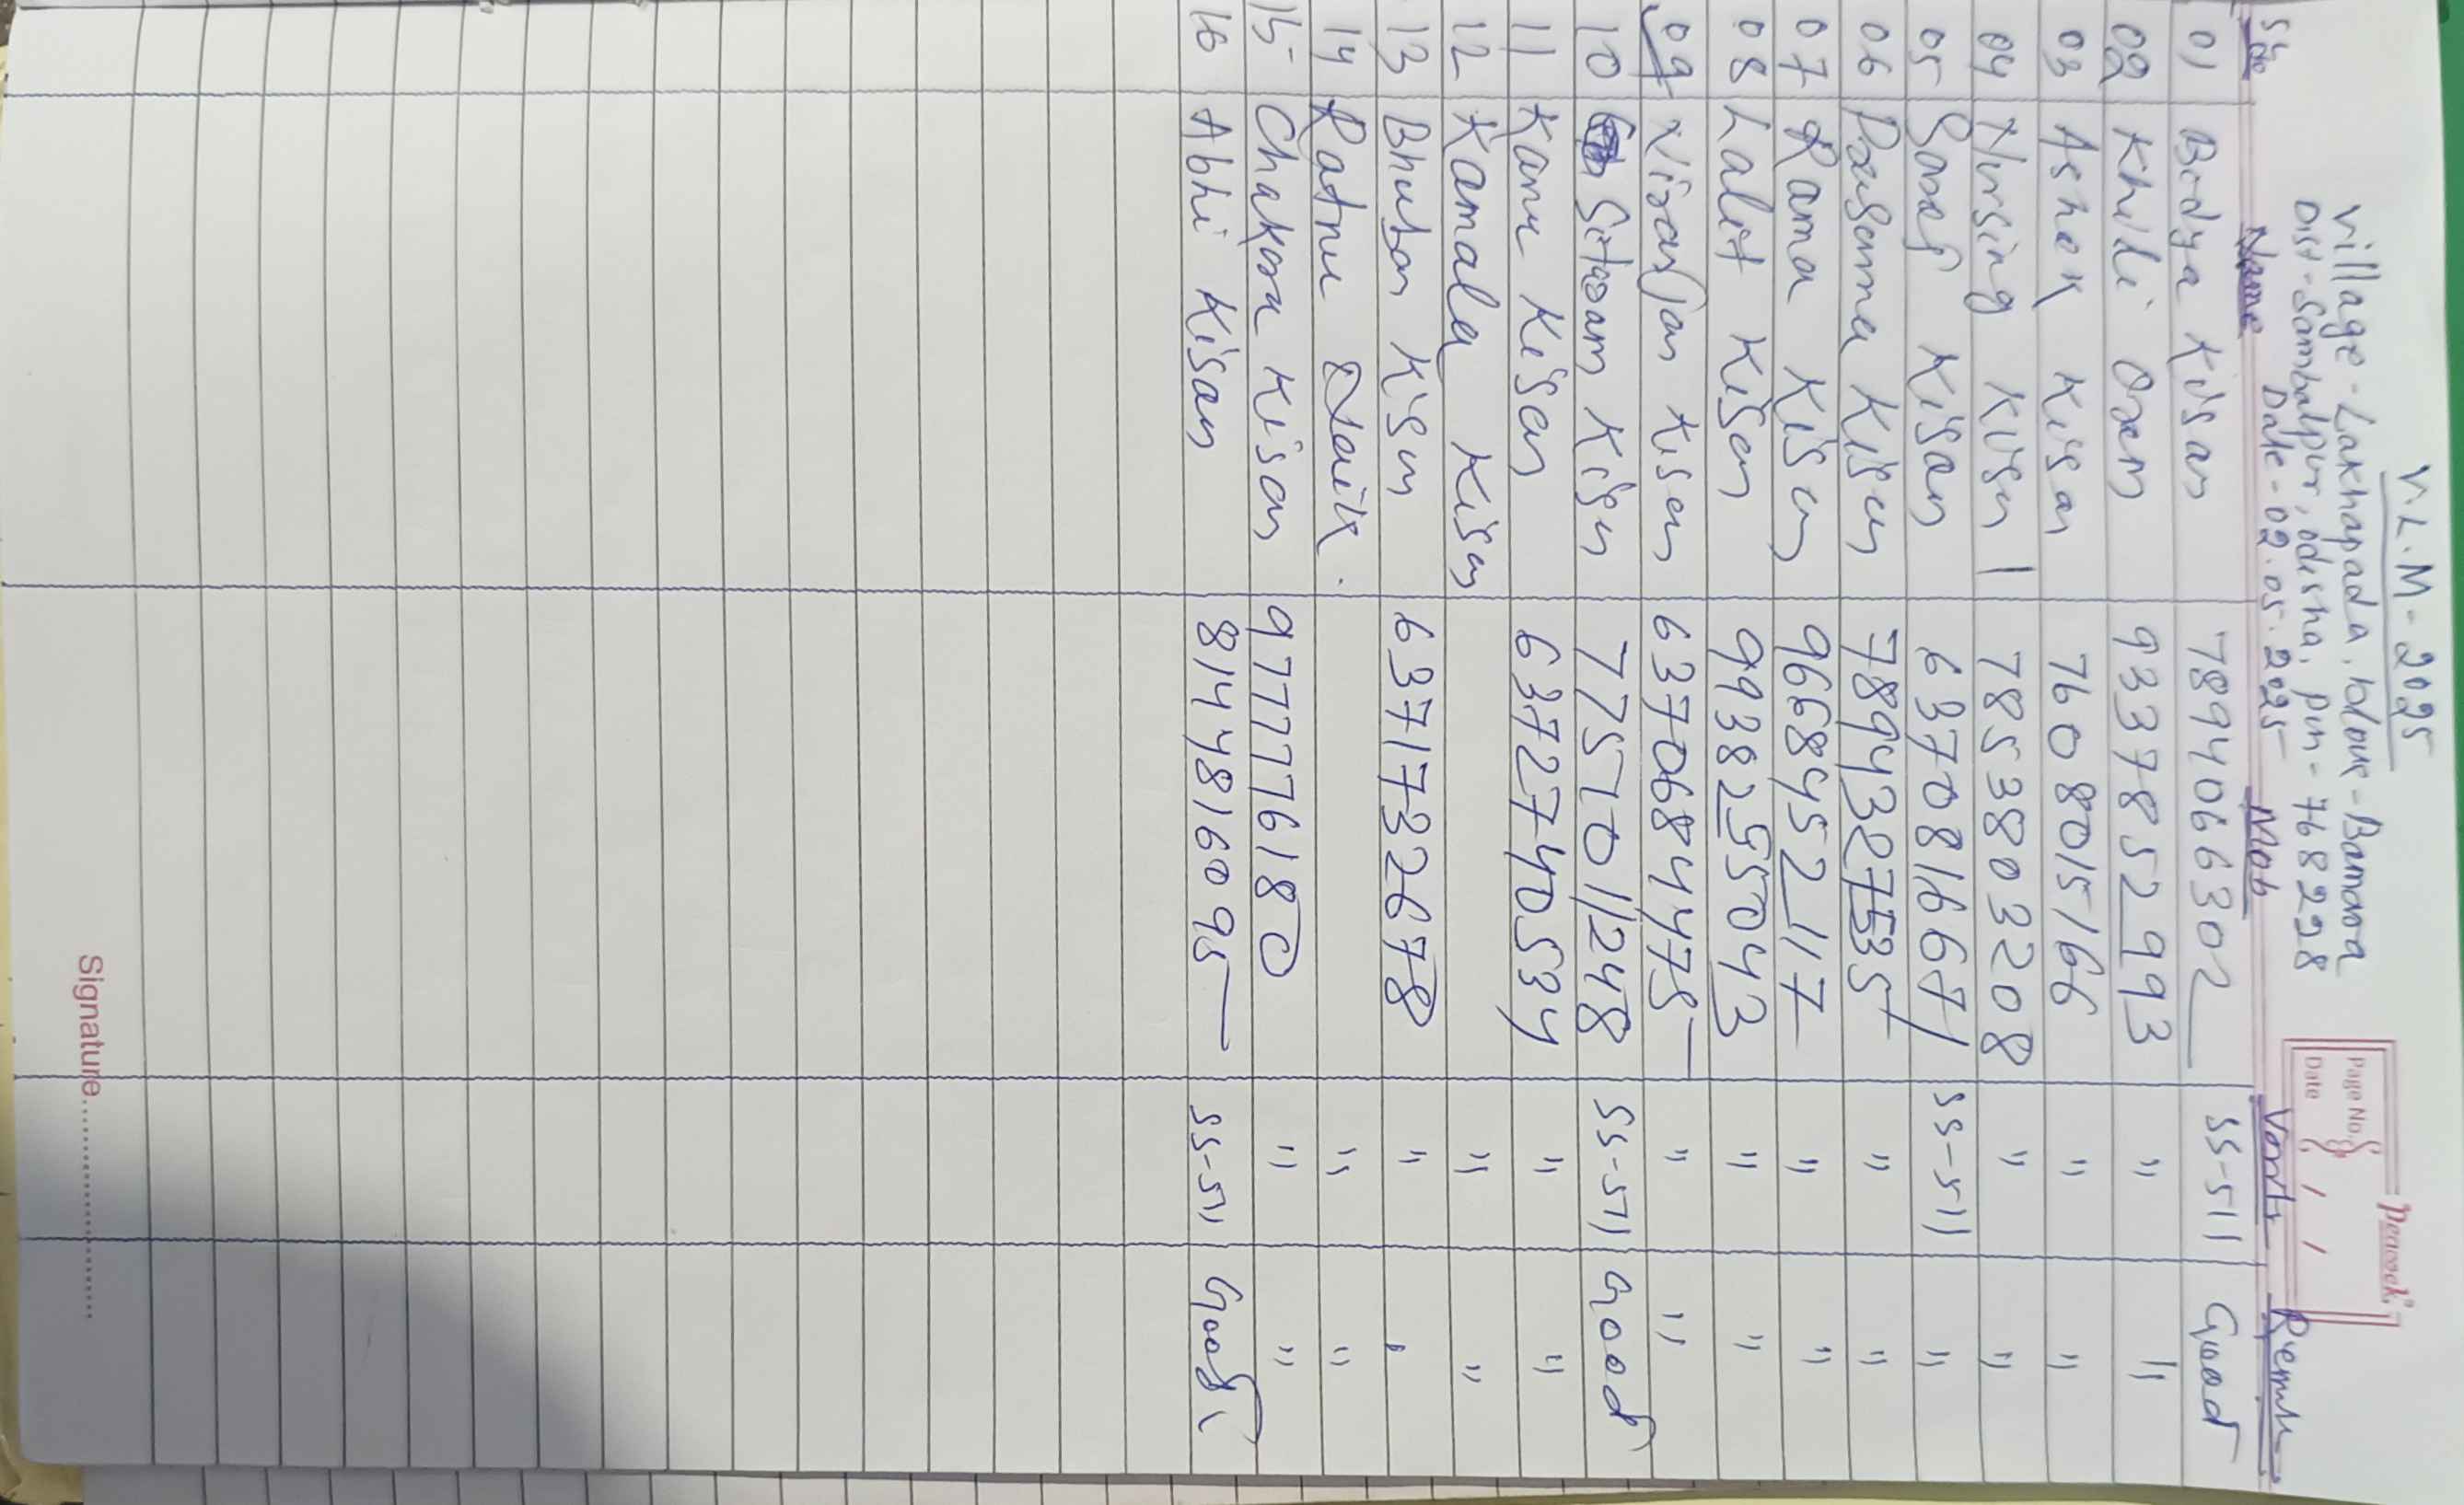 V.L.M - 2025
Village - Lakhapada, block - Bamara
Dist - Sambalpur, odisha, pin - 768228
Date - 02.05.2025
Peacock
Page No.
Date / /
Sl no Name Mob Varity Remark
01 Bidya Kisan 7894066302 SS-511 Good
02 Khili Oram 9337852993 " "
03 Ashok Kisan 7608015166 " "
04 Nursing Kisan 7853803208 " "
05 Kisan 6370816671 SS-511 "
06 Kisan 7894327535 " "
07 Rama Kisan 9668452117 " "
08 Lalit Kisan 9938255043 " "
09 Niranjan Kisan 6370684475 " "
10 Sitaram Kisan 7757011248 SS-511 Good
11 Kanu Kisan 6372740534 " "
12 Kamala Kisan " "
13 Bhuban Kisan 6371732678 " "
14 Ratnu Naik. " "
15 Chakara Kisan 9777776180 " "
16 Abhi Kisan 8144816095 SS-511 Good
Signature